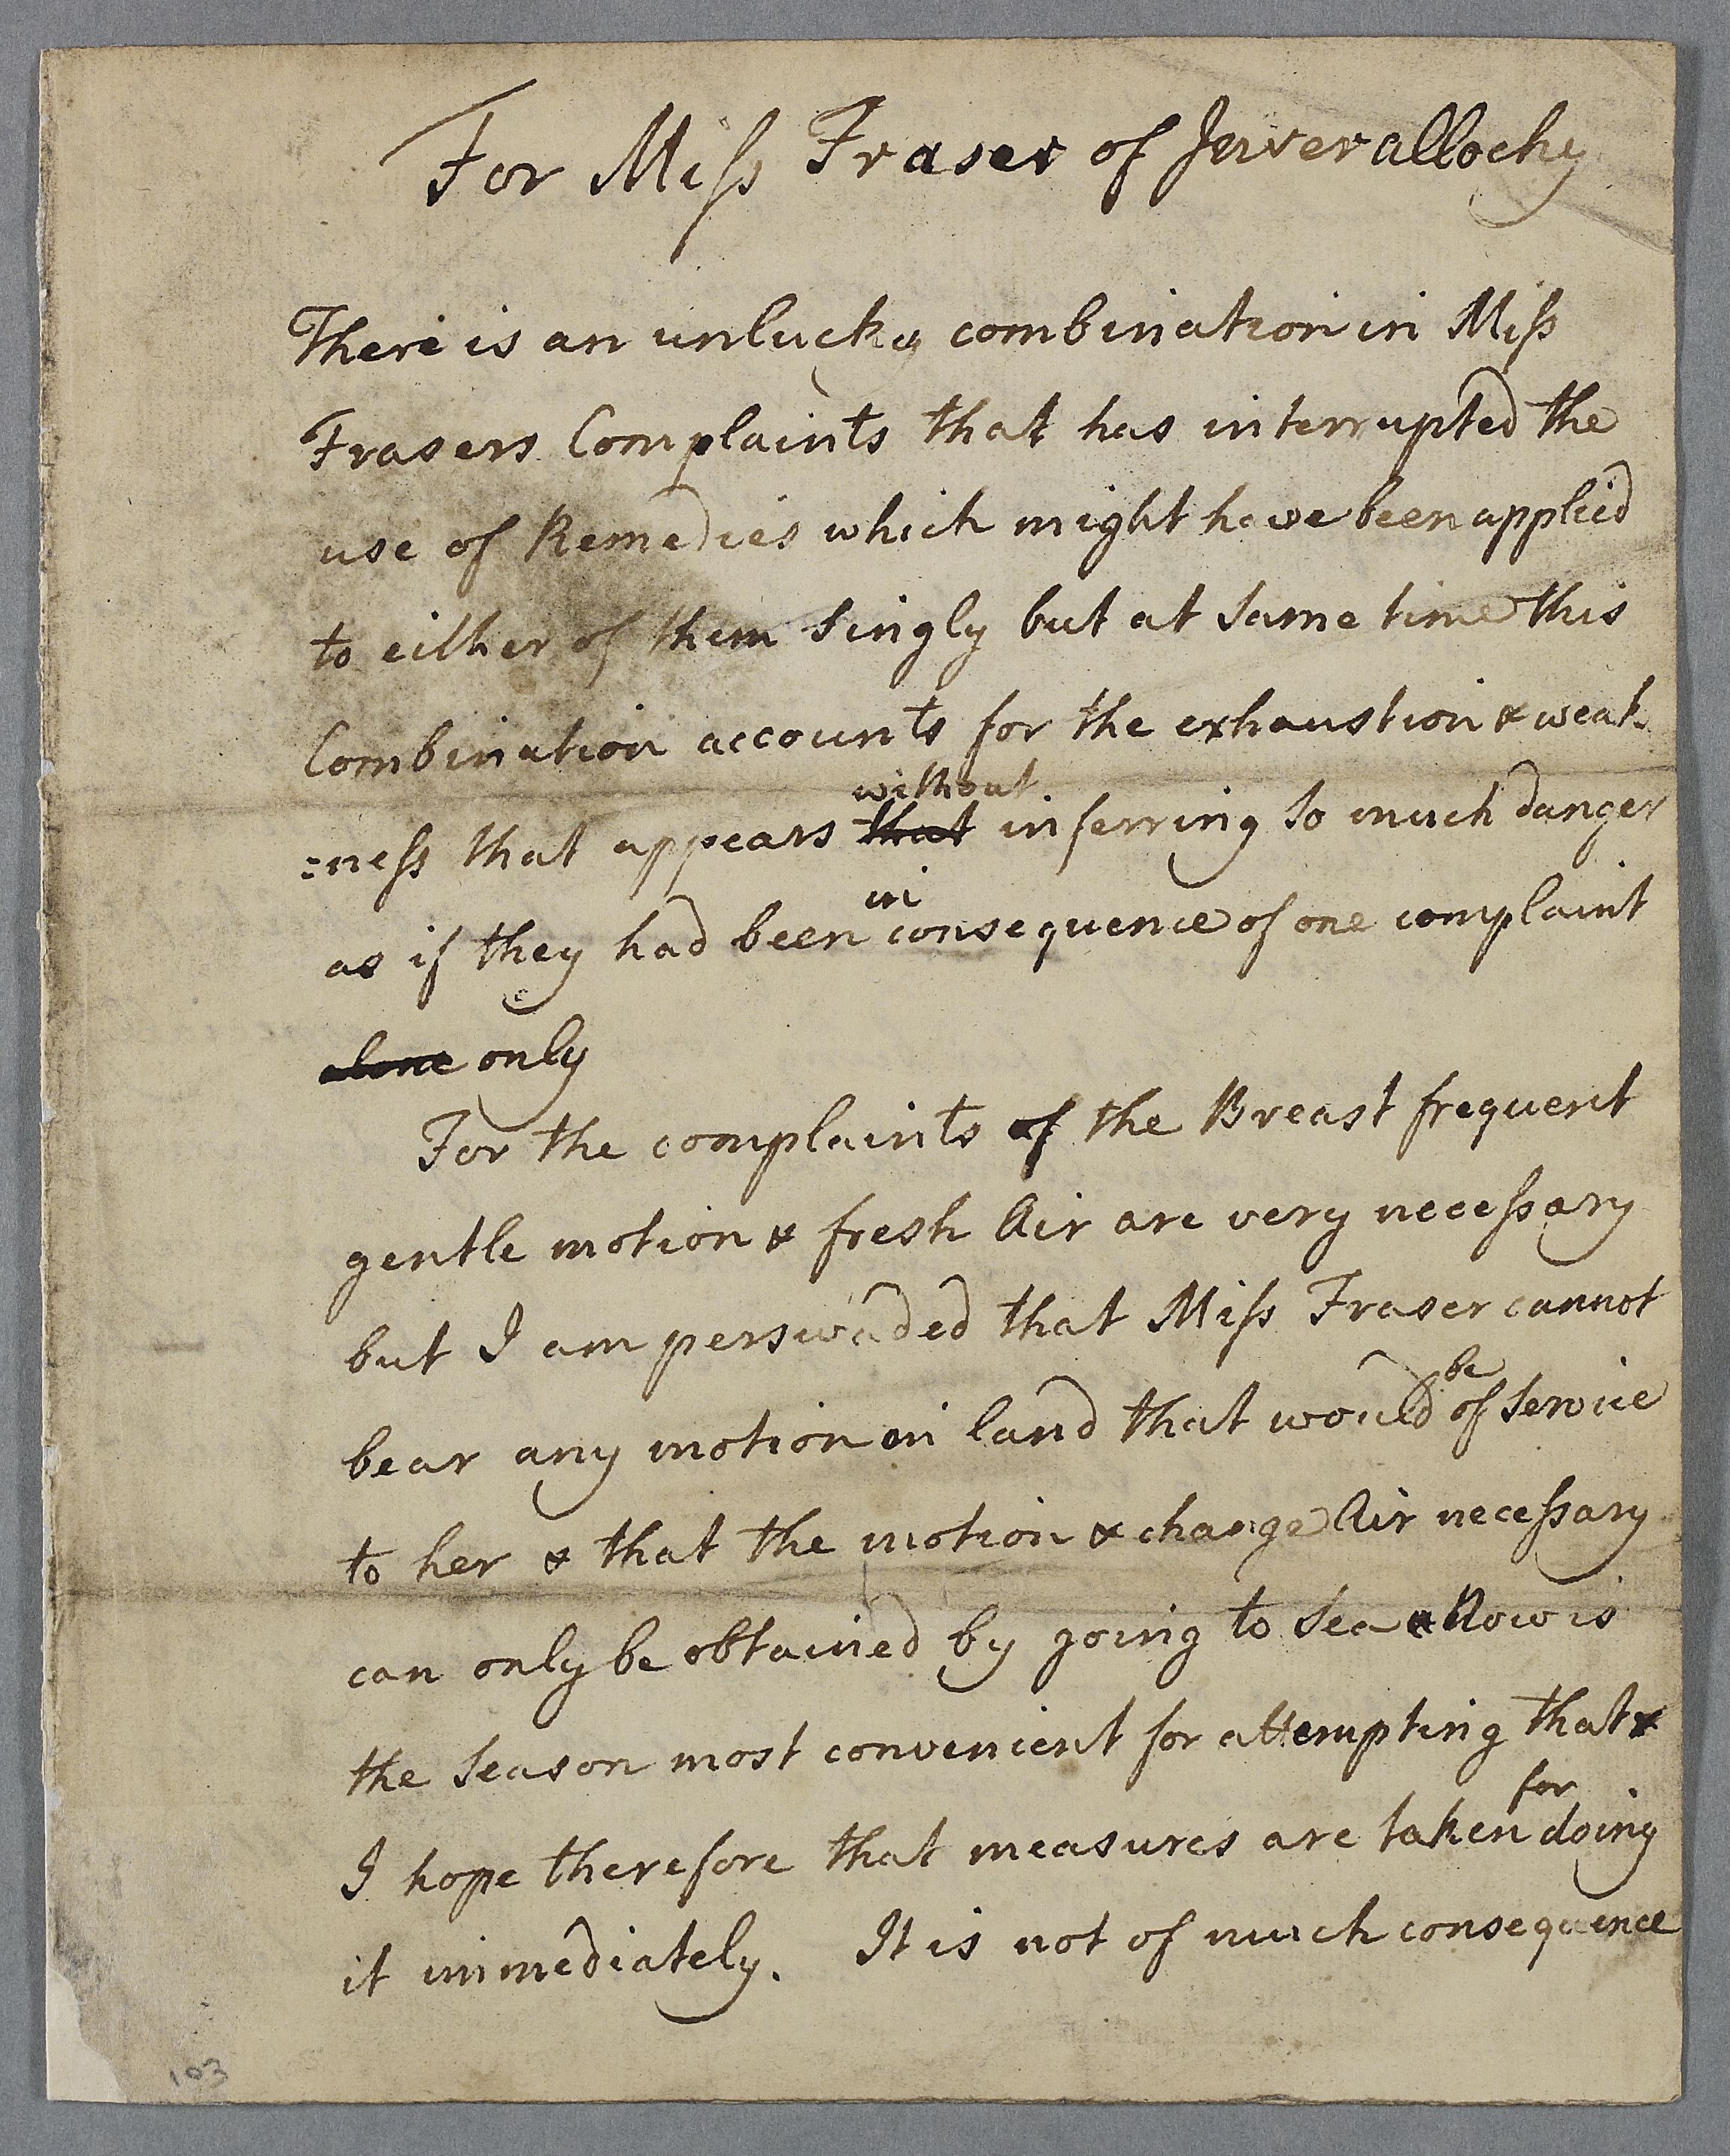 For Miss Fraser of Inverallochy
There is an unlucky combination in Miss
Frasers Complaints that has interrupted the
use of Remedies which might have been applied
to either of them singly but at same time this
Combination accounts for the exhaustion & weak
without
:ness that appears that inferring so much danger
in
as if they had been consequence of one complaint
alone only
For the complaints of the Breast frequent
gentle motion & fresh Air are very necessary
but I am perswaded that Miss Fraser cannot
be
bear any motion on land that would of service
to her & that the motion & change Air necessary
can only be obtained by going to Sea & Now is
the Season most convenient for attempting that &
for
I hope therefore that measures are taken doing
it immediately. It is not of much consequence
103